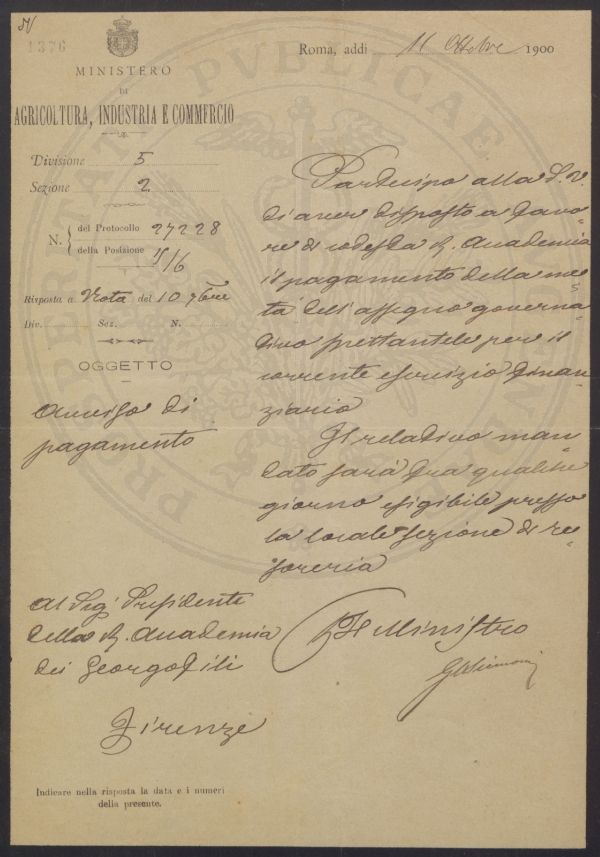 IV
1376
MINISTERO
DI
AGRICOLTURA, INDUSTRIA E COMMERCIO
Roma, addì 11 Ottobre 1900
Divisione 5
Sezione 2
N. { del Protocollo 27228
della Posizione 15/6
Risposta a Nota del 10 7bre
Div. Sez. N.
OGGETTO
Avviso di
pagamento
Partecipo alla S. V.
di aver disposto a favo-
re di codesta R. Accademia
il pagamento della me-
tà dell'assegno governa-
tivo spettantele per il
corrente esercizio finan-
ziario
Il relativo man-
dato sarà fra qualche
giorno esigibile presso
la locale sezione di te-
soreria
Al Sig. Presidente
della R. Accademia
dei Georgofili
Firenze
Il Ministro
Indicare nella risposta la data e i numeri
della presente.
PROSPERITATI PVBLICAE